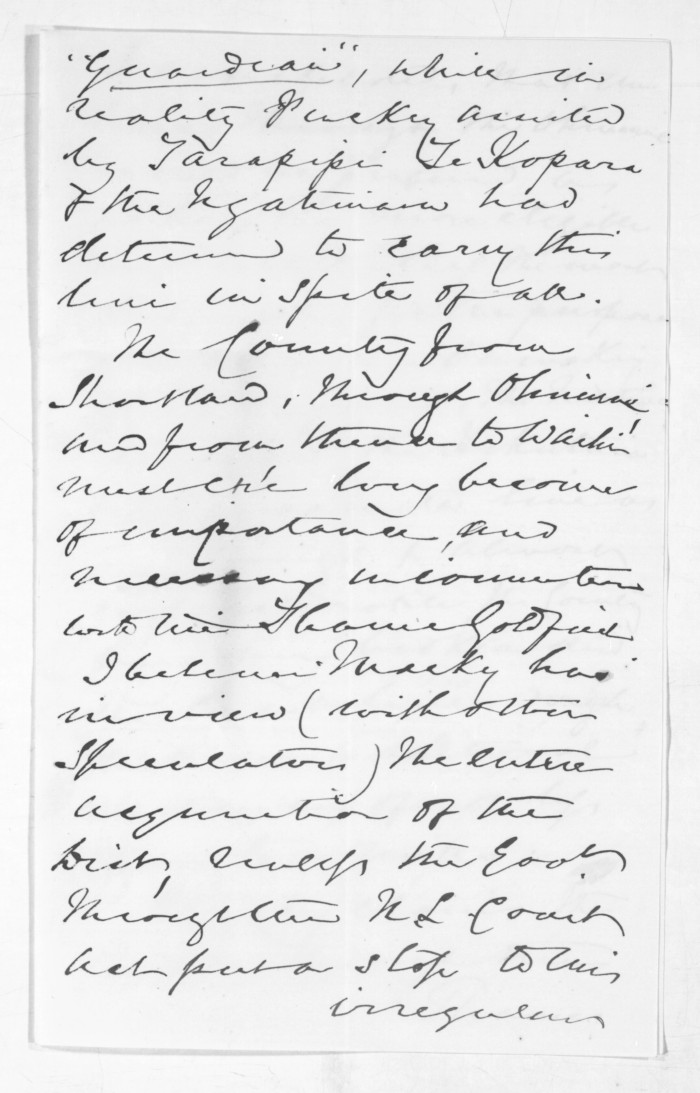 "Guardian", while in
reality Puckey assisted
by Tarapipi Te Kopara
& the Ngatimaru had
determined to carry this
line in spite of all.
The Country from
Shortland, through Ohinemuri
and from thence to Waihi
must ere long become
of importance, and
necessary in connection
with the Thames Goldfield
I believe Mackay has
in view (with other
Speculators) the entire
acquisition of the
Dist, unless the Govt
through the N L Court
Act put a stop to his
irregular